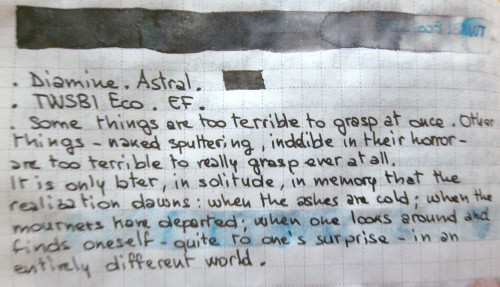 TWSBI Eco
. Diamine. Astral.
. TWSBI Eco. EF.
. Some things are too terrible to grasp at once. Other
things - naked sputtering, indelible in their horror-
are too terrible to really grasp ever at all.
It is only later, in solitude, in memory that the
realization dawns: when the ashes are cold; when the
mourners have departed; when one looks around and
finds oneself - quite to one's surprise - in an
entirely different world.